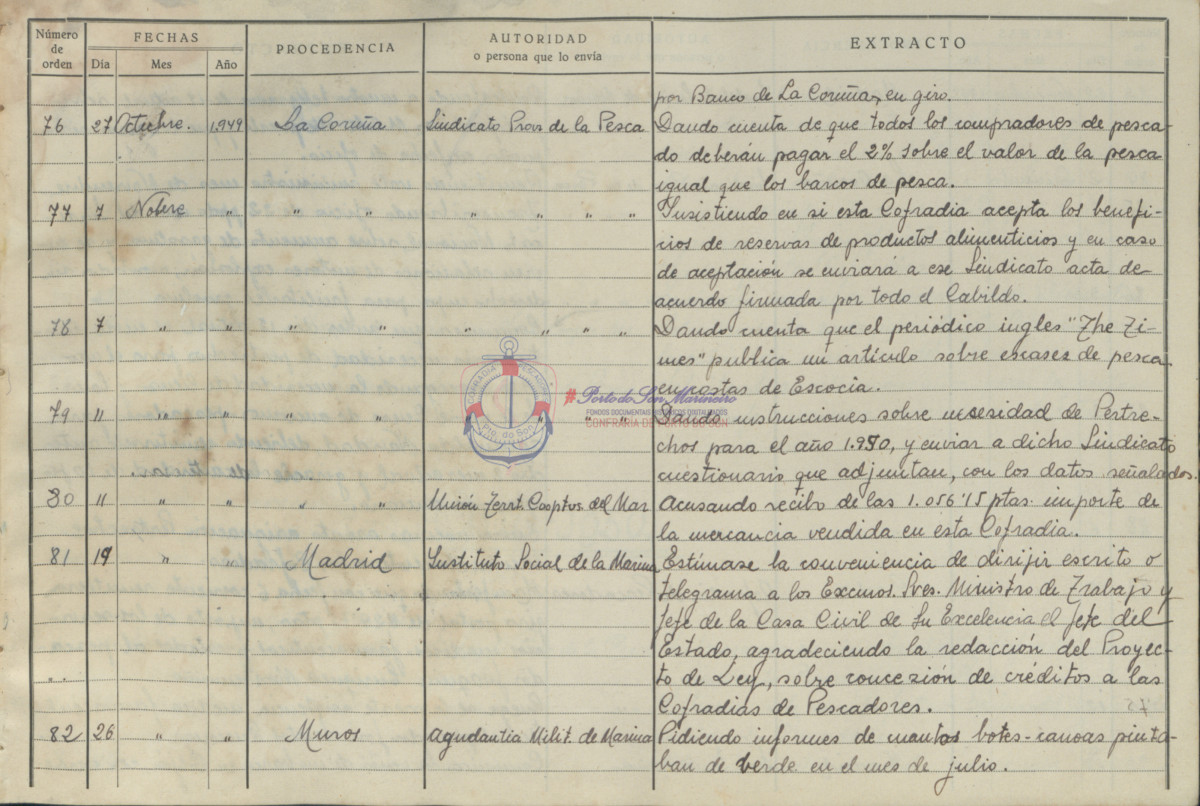 Número de orden | FECHAS | PROCEDENCIA | AUTORIDAD o persona que lo envía | EXTRACTO
Día | Mes | Año
por Banco de La Coruña, en giro.
76 27 Octubre. 1.949 La Coruña Sindicato Prov. de la Pesca Dando cuenta de que todos los compradores de pesca-
do deberán pagar el 2% sobre el valor de la pesca
igual que los barcos de pesca.
77 7 Nobre " " " " " " " Insistiendo en si esta Cofradia acepta los benefi-
cios de reservas de productos alimenticios y en caso
de aceptación se enviará a ese Sindicato acta de
acuerdo firmada por todo el Cabildo.
78 7 " " " " " " " " Dando cuenta que el periódico ingles "The Ti-
mes" publica un artículo sobre escases de pesca
en costas de Escocia.
79 11 " " " " " " Dando instrucciones sobre necesidad de Pertre-
chos para el año 1.950, y enviar a dicho Sindicato
cuestionario que adjuntan, con los datos señalados.
80 11 " " " " Unión Territ. Cooptvs. del Mar Acusando recibo de las 1.056'15 ptas. importe de
la mercancia vendida en esta Cofradia.
81 19 " " Madrid Instituto Social de la Marina Estímase la conveniencia de dirijir escrito o
telegrama a los Excmos. Sres. Ministro de Trabajo y
Jefe de la Casa Civil de Su Excelencia el Jefe del
Estado, agradeciendo la redacción del Proyec-
to de Ley, sobre concezión de créditos a las
Cofradias de Pescadores.
82 26 " " Muros Ayudantia Milit. de Marina Pidiendo informes de cuantos botes-canoas pinta-
ban de verde en el mes de julio.
COFRADIA PESCADORES
Pto. do Son
#Porto do Son Mariñeiro
CONFRARIA DE PORTO DO SON